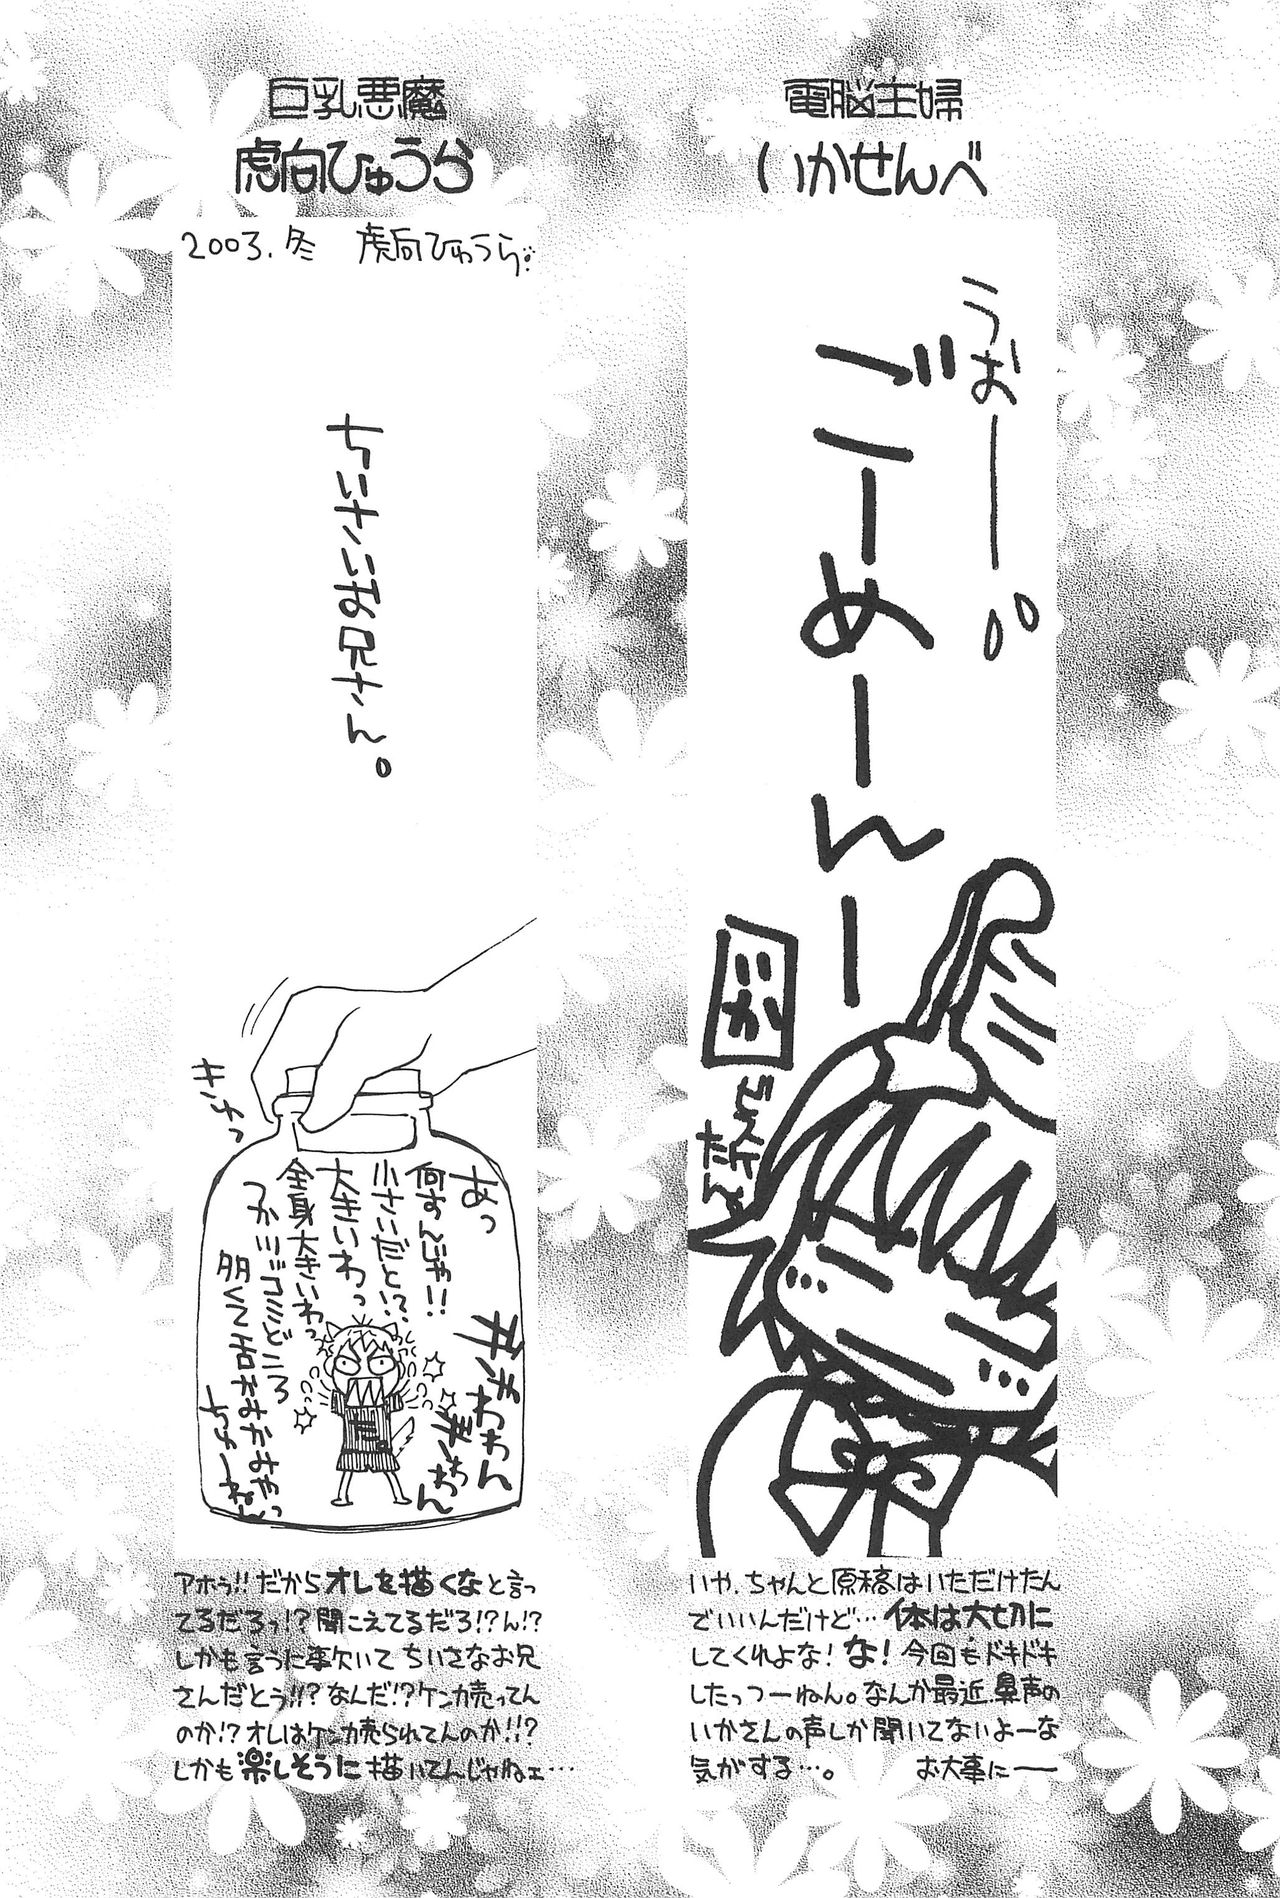 電脳主婦
いかせんべ
うおーー。
ごーめーんー
いや、ちゃんと原稿はいただけたん
でいいんだけど…体は大切に
してくれよな!な!今回もドキドキ
したっつーねん。なんか最近、鼻声の
いかさんの声しか聞いてないよーな
気がする…。 お大事にー
巨乳悪魔
虎向ひゅうら
2003.冬 虎向ひゅうら
ちいさいお兄さん。
キュッ
あっ
何すんじゃ!!
小さいだと!?
大きいわっ
全身大きいわっ
アホゥ!!だからオレを描くなと言っ
てるだろっ!?聞こえてるだろ!?ん!?
しかも言うに事欠いてちいさなお兄
さんだとう!!?なんだ!?ケンカ売ってん
のか!?オレはケンカ売られてんのか!!?
しかも楽しそうに描いてんじゃねェ…